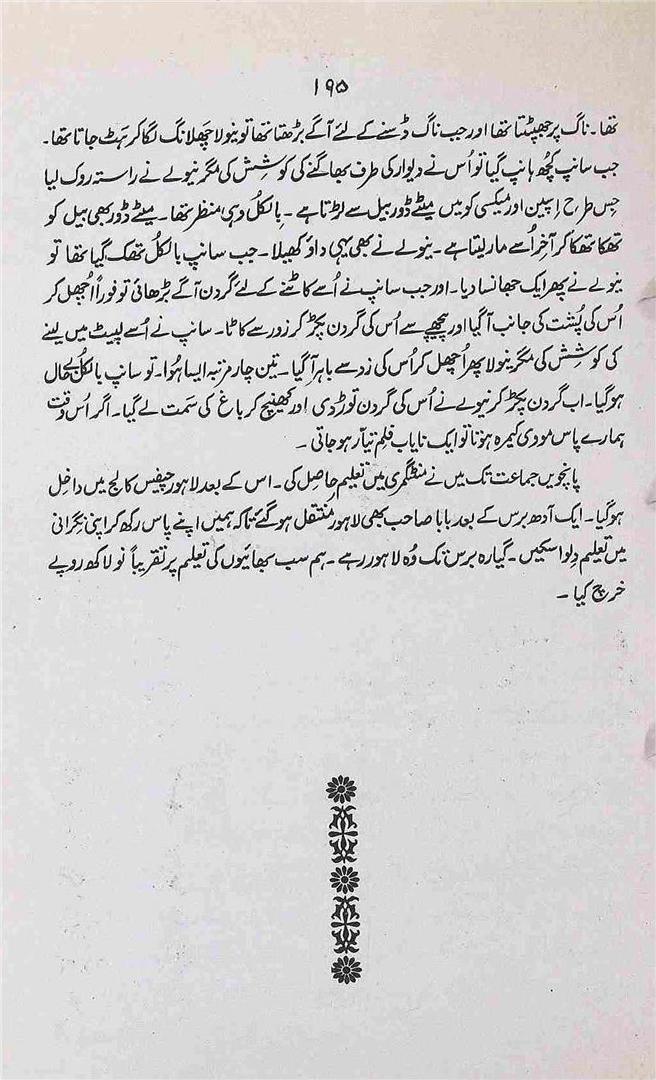 ۱۹۵
تھا۔ ناگ پر جھپٹتا تھا اور جب ناگ ڈسنے کے لئے آگے بڑھتا تھا تو نیولا چھلانگ لگا کر ہٹ جاتا تھا۔
جب سانپ کچھ ہانپ گیا تو اُس نے دیوار کی طرف بھاگنے کی کوشش کی مگر نیولے نے راستہ روک لیا
جس طرح اسپین اور میکسی کو میں میٹے ڈور بیل سے لڑتا ہے۔ بالکل وہی منظر تھا۔ میٹے ڈور بھی بیل کو
تھکا تھکا کر آخر اُسے مار لیتا ہے۔ نیولے نے بھی یہی داؤ کھیلا۔ جب سانپ بالکل تھک گیا تھا تو
نیولے نے پھر ایک جھانسا دیا۔ اور جب سانپ نے اُسے کاٹنے کے لئے گردن آگے بڑھائی تو فوراً اُچھل کر
اُس کی پُشت کی جانب آ گیا اور پیچھے سے اُس کی گردن پکڑ کر زور سے کاٹا۔ سانپ نے اُسے لپیٹ میں لینے
کی کوشش کی مگر نیولا پھر اُچھل کر اُس کی زد سے باہر آ گیا۔ تین چار مرتبہ ایسا ہُوا۔ تو سانپ بالکل بے حال
ہو گیا۔ اب گردن پکڑ کر نیولے نے اُس کی گردن توڑ دی اور کھینچ کر باغ کی سمت لے گیا۔ اگر اُس وقت
ہمارے پاس مووی کیمرہ ہوتا تو ایک نایاب فلم تیار ہو جاتی۔
پانچویں جماعت تک میں نے منٹگمری میں تعلیم حاصل کی۔ اس کے بعد لاہور چیفس کالج میں داخل
ہو گیا۔ ایک آدھ برس کے بعد بابا صاحب بھی لاہور مُنتقل ہو گئے تاکہ ہمیں اپنے پاس رکھ کر اپنی نگرانی
میں تعلیم دِلوا سکیں۔ گیارہ برس تک وُہ لاہور رہے۔ ہم سب بھائیوں کی تعلیم پر تقریباً نو لاکھ روپے
خرچ کیا۔